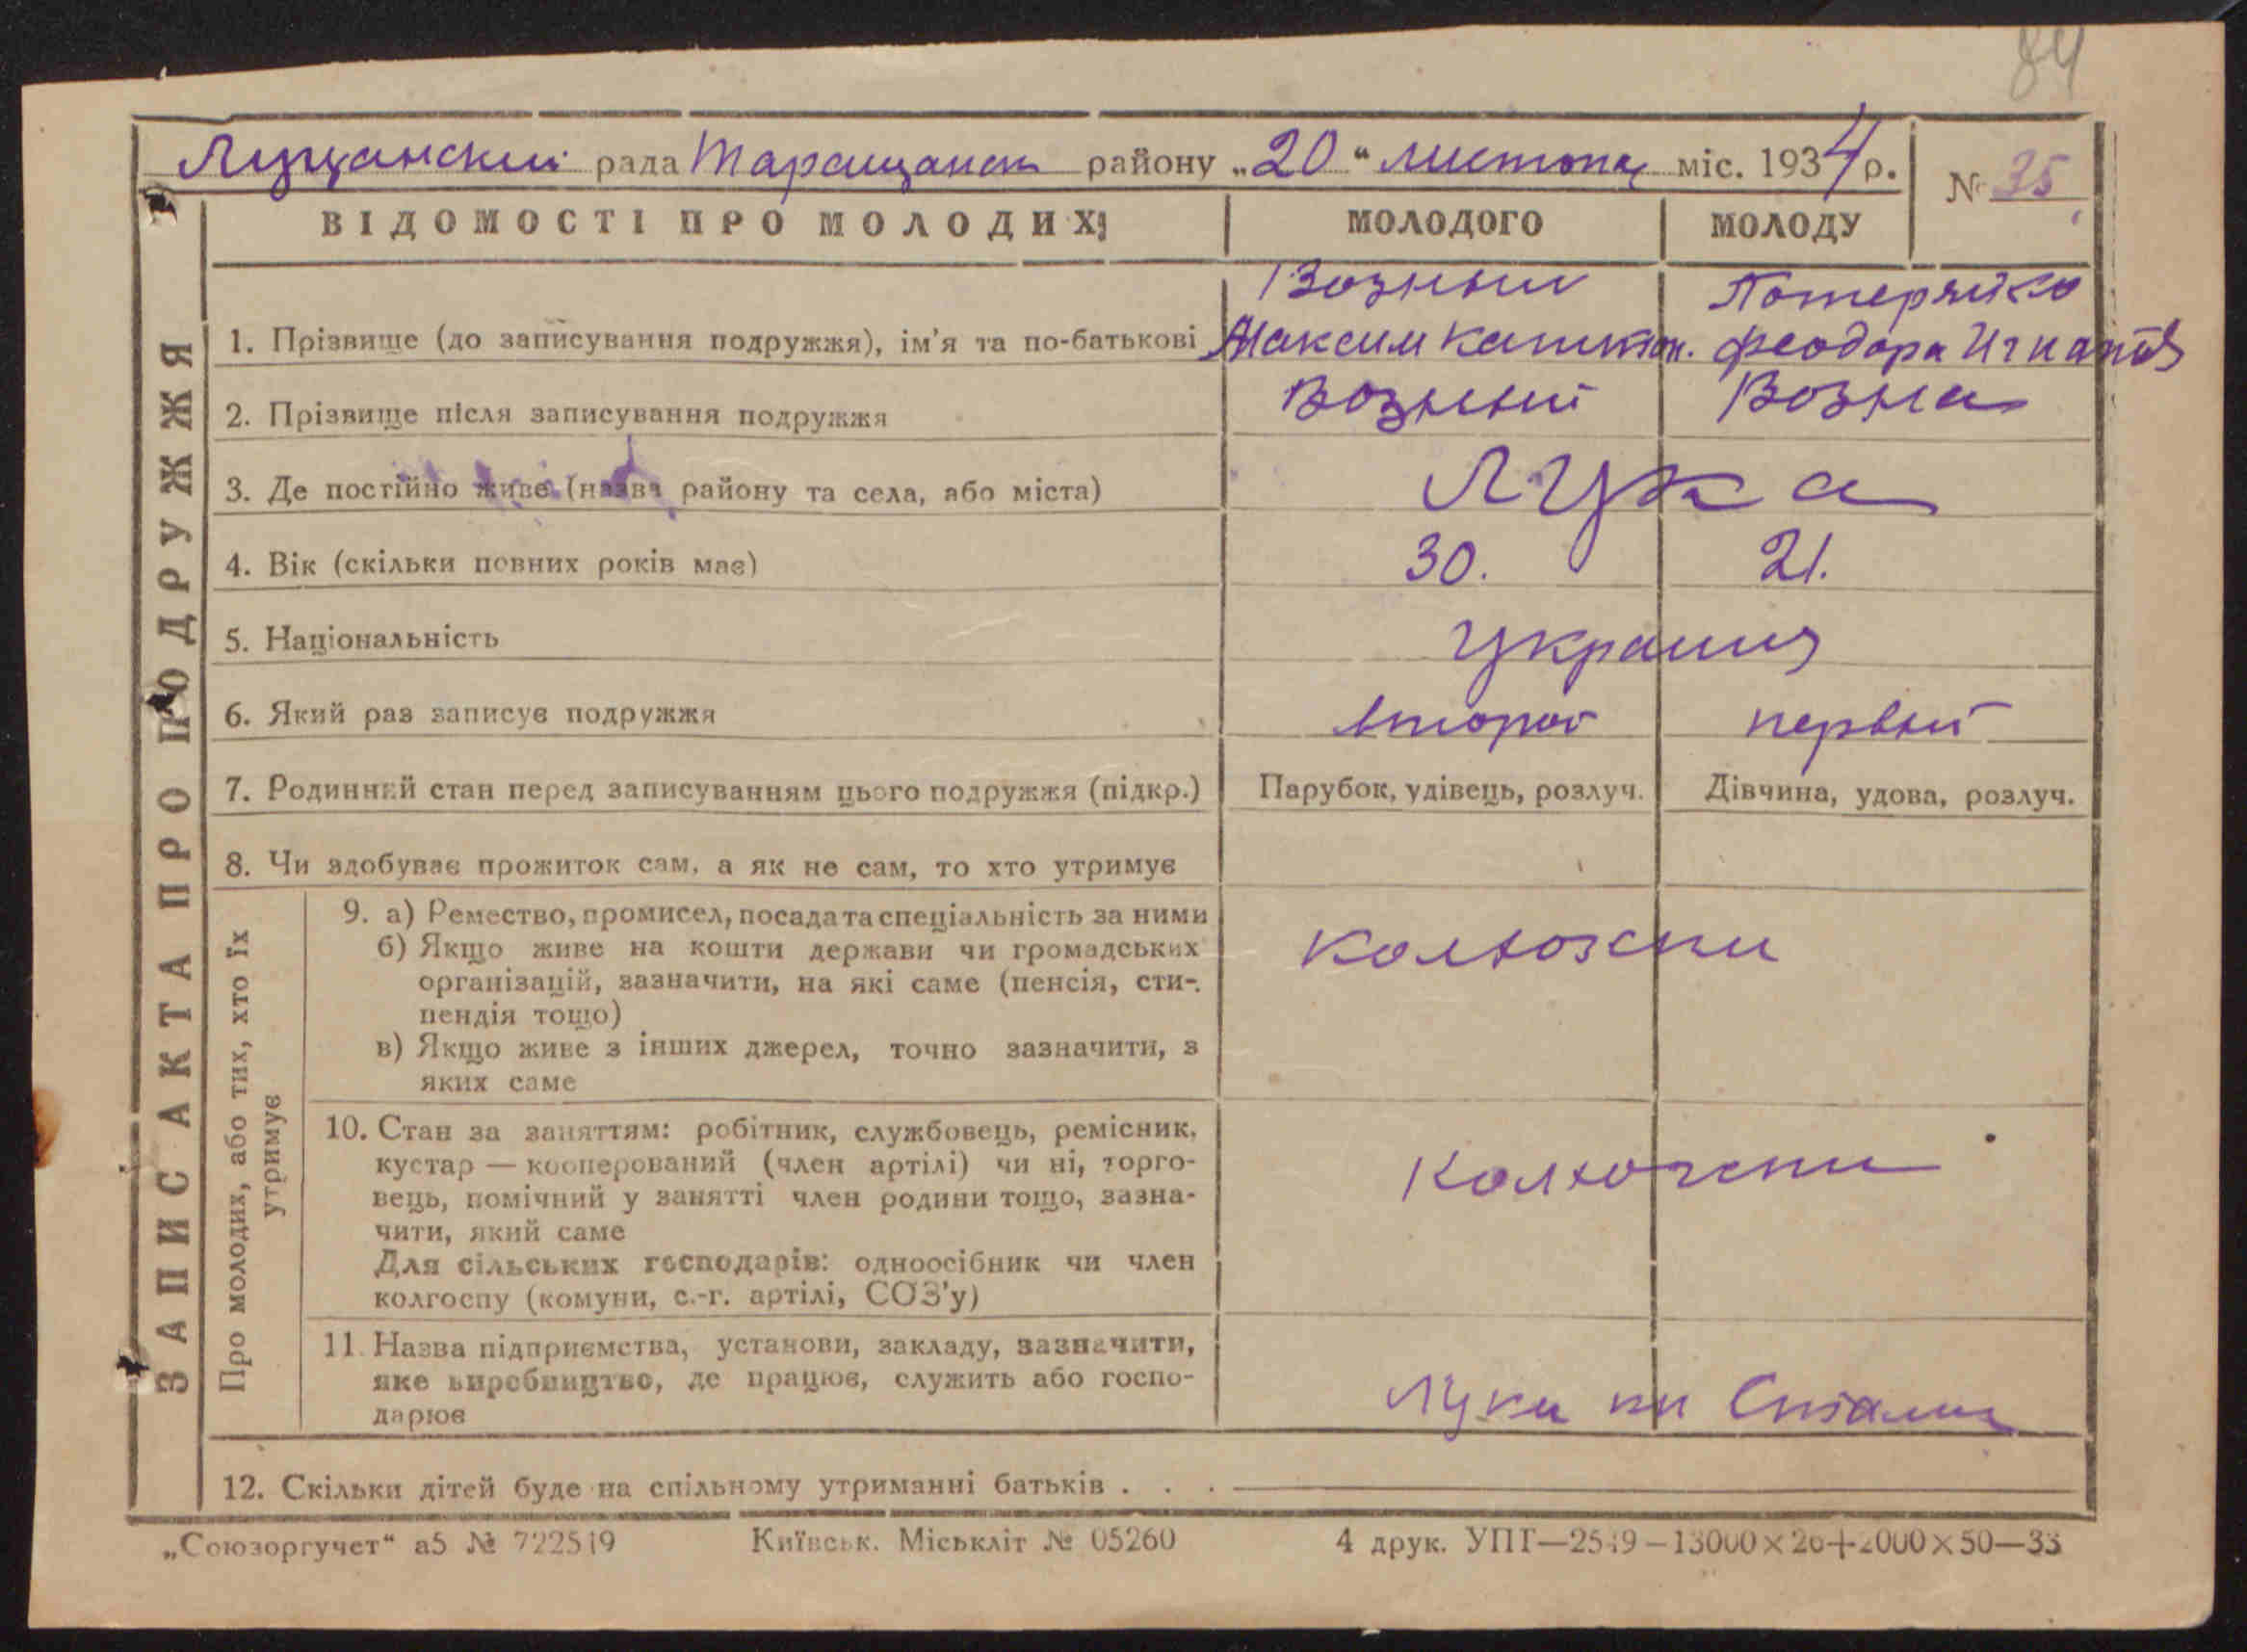 84
Лущанский рада Таращанск району „20“ листопад міс. 1934 р. № 35
ВІДОМОСТІ ПРО МОЛОДИХ
МОЛОДОГО
МОЛОДУ
Возный
Потеряйко
1. Прізвище (до записування подружжя), ім'я та по-батькові
Максим
Феодора Игнатов
2. Прізвище після записування подружжя
Возный
Возна
3. Де постійно живе (назва району та села, або міста)
Лука
4. Вік (скільки повних років має)
30.
21.
5. Національність
Украин
6. Який раз записує подружжя
второй
первый
7. Родинний стан перед записуванням цього подружжя (підкр.)
Парубок, удівець, розлуч.
Дівчина, удова, розлуч.
8. Чи здобуває прожиток сам, а як не сам, то хто утримує
ЗАПИС АКТА ПРО ПОДРУЖЖЯ
Про молодих, або тих, хто їх
утримує
9. а) Ремество, промисел, посада та спеціальність за ними
б) Якщо живе на кошти держави чи громадських
організацій, зазначити, на які саме (пенсія, сти-
пендія тощо)
в) Якщо живе з інших джерел, точно зазначити, з
яких саме
колхозни
10. Стан за заняттям: робітник, службовець, ремісник,
кустар — кооперований (член артілі) чи ні, торго-
вець, помічний у занятті член родини тощо, зазна-
чити, який саме
Для сільських господарів: одноосібник чи член
колгоспу (комуни, с.-г. артілі, СОЗ'у)
Колхозни
11. Назва підприємства, установи, закладу, зазначити,
яке виробництво, де працює, служить або госпо-
дарює
Луки им Сталин
12. Скільки дітей буде на спільному утриманні батьків . . .
„Союзоргучет“ а5 № 722519
Київськ. Міськліт № 05260
4 друк. УПГ—2549—13000×20+2000×50—33